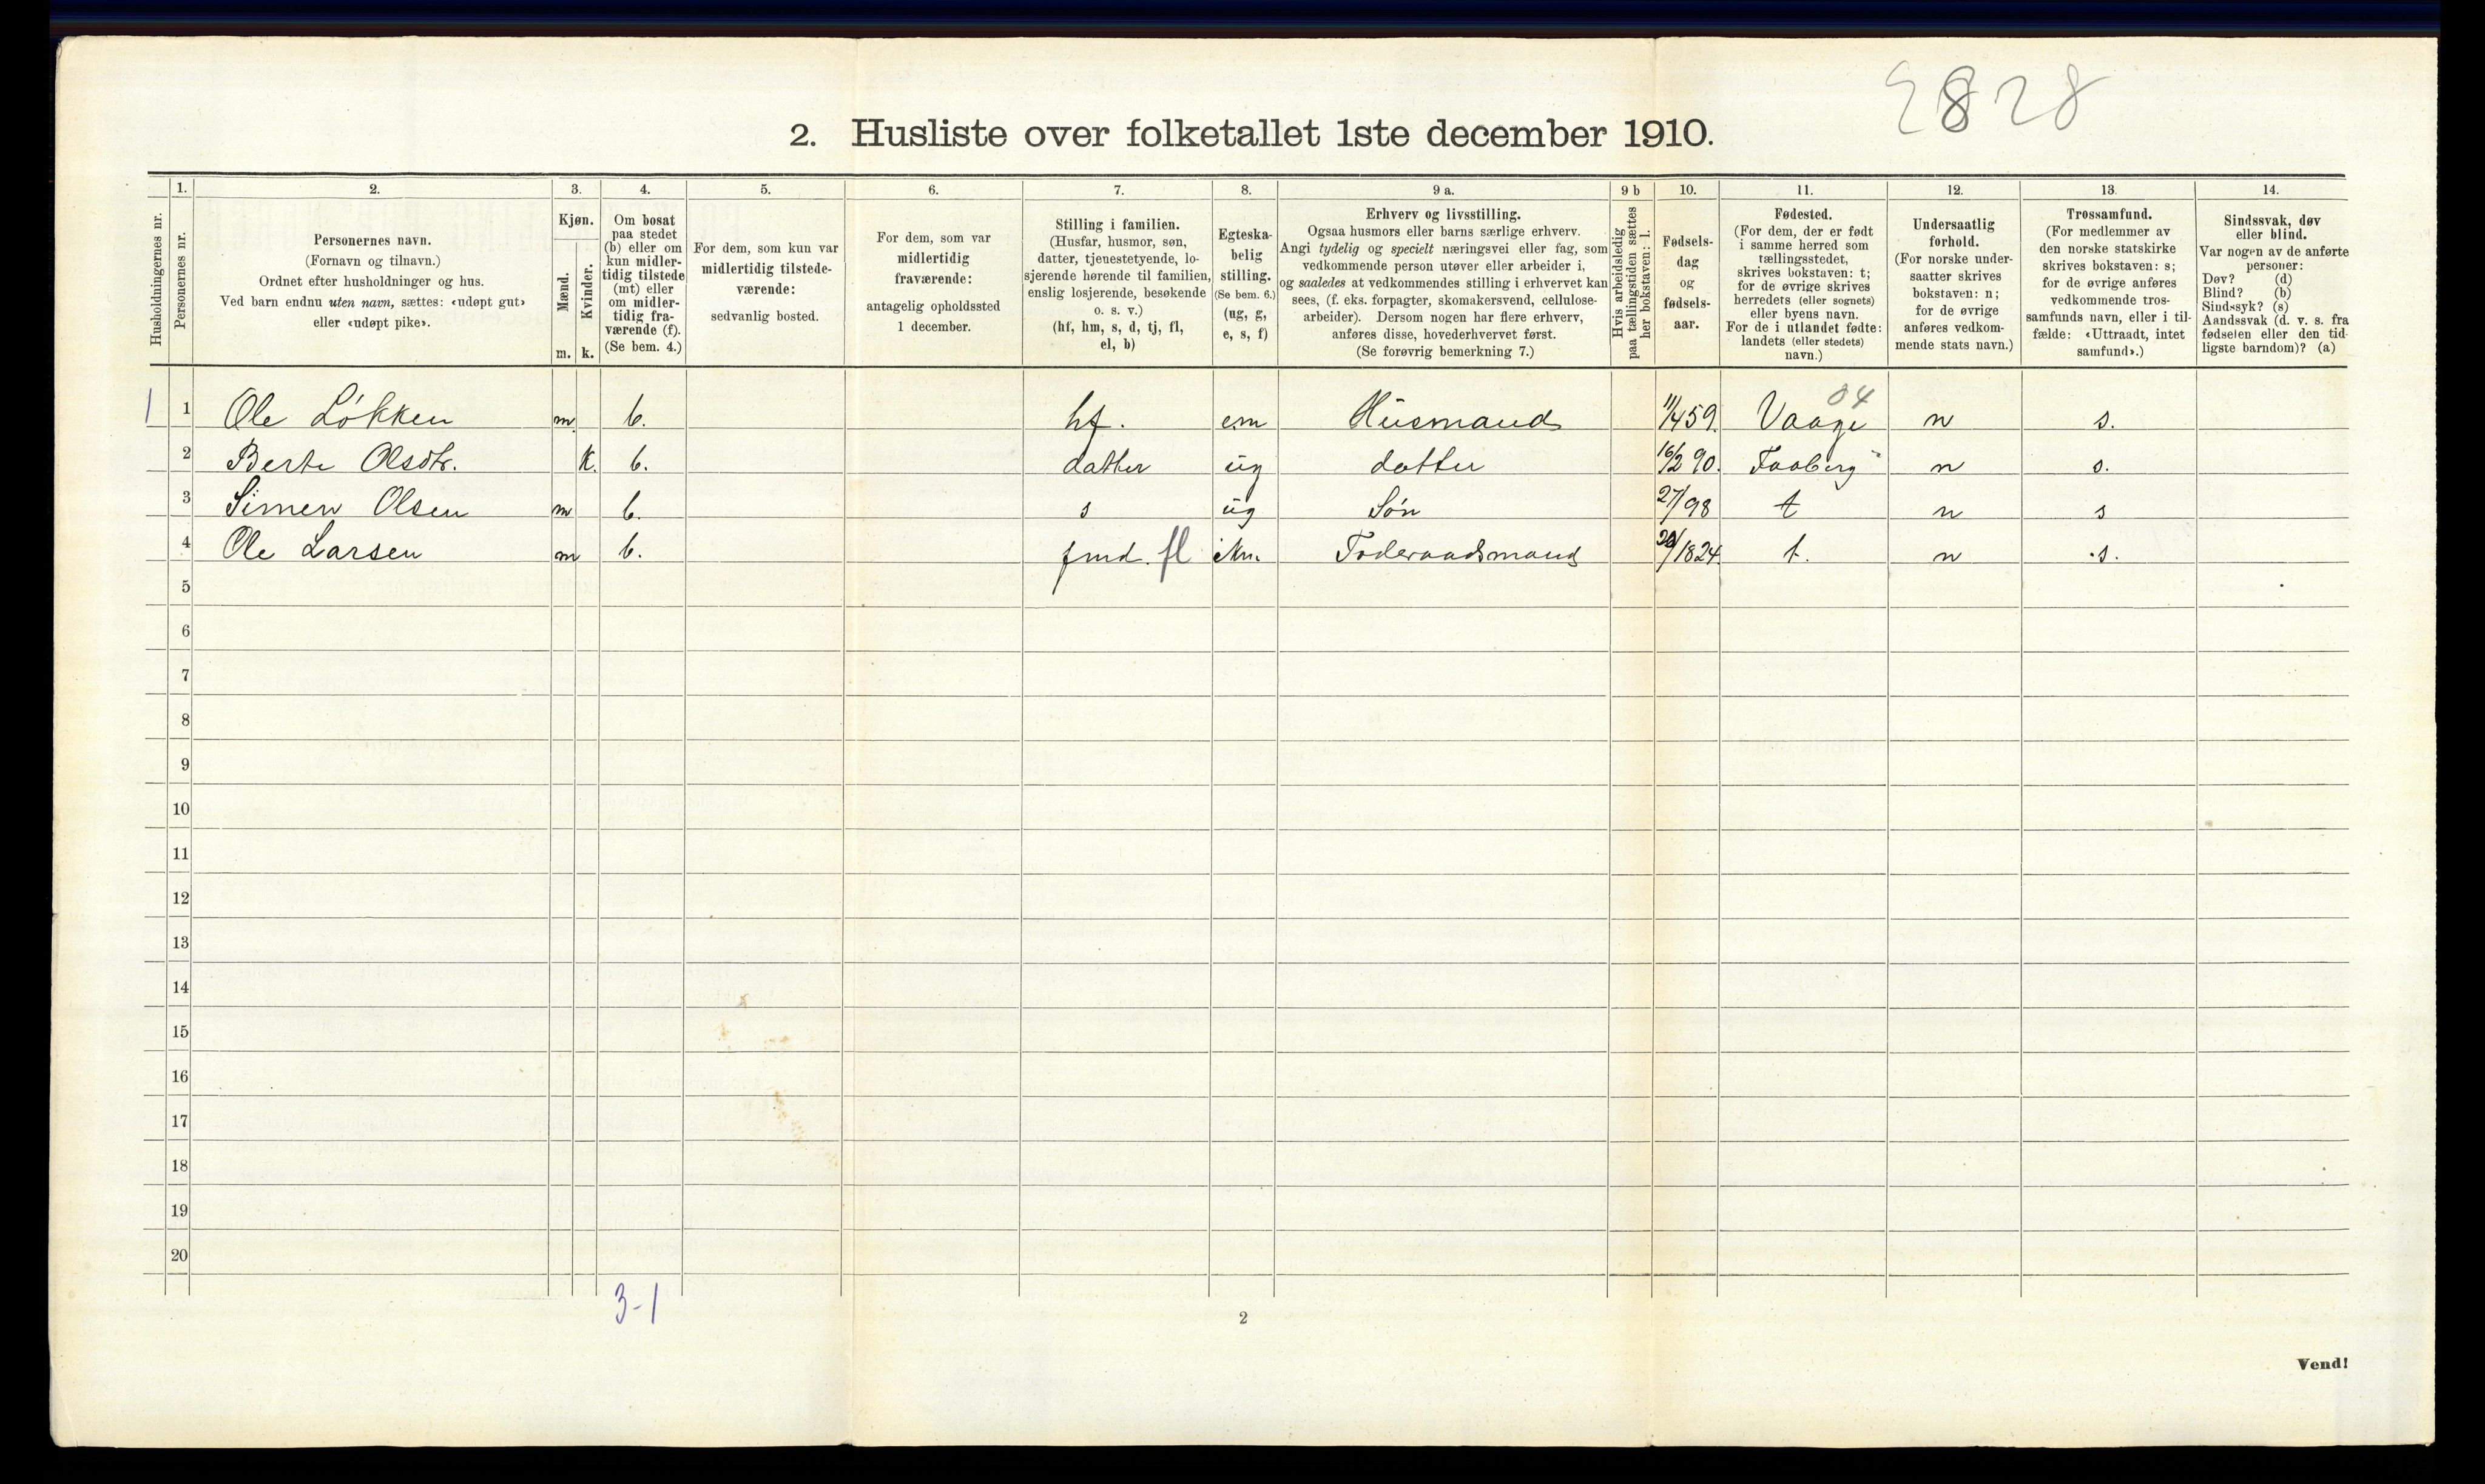 2828
2. Husliste over folketallet 1ste december 1910.
Husholdningernes nr.
1.
Personernes nr.
2.
Personernes navn.
(Fornavn og tilnavn.)
Ordnet efter husholdninger og hus.
Ved barn endnu uten navn, sættes: «udøpt gut»
eller «udøpt pike».
3.
Kjøn.
Mænd.
Kvinder.
m. k.
4.
Om bosat
paa stedet
(b) eller om
kun midler-
tidig tilstede
(mt) eller
om midler-
tidig fra-
værende (f).
(Se bem. 4.)
5.
For dem, som kun var
midlertidig tilstede-
værende:
sedvanlig bosted.
6.
For dem, som var
midlertidig
fraværende:
antagelig opholdssted
1 december.
7.
Stilling i familien.
(Husfar, husmor, søn,
datter, tjenestetyende, lo-
sjerende hørende til familien,
enslig losjerende, besøkende
o. s. v.)
(hf, hm, s, d, tj, fl,
el, b)
8.
Egteska-
belig
stilling.
(Se bem. 6.)
(ug, g,
e, s, f)
9 a.
Erhverv og livsstilling.
Ogsaa husmors eller barns særlige erhverv.
Angi tydelig og specielt næringsvei eller fag, som
vedkommende person utøver eller arbeider i,
og saaledes at vedkommendes stilling i erhvervet kan
sees, (f. eks. forpagter, skomakersvend, cellulose-
arbeider). Dersom nogen har flere erhverv,
anføres disse, hovederhvervet først.
(Se forøvrig bemerkning 7.)
9 b
Hvis arbeidsledig
paa tællingstiden sættes
her bokstaven: l.
10.
Fødsels-
dag
og
fødsels-
aar.
11.
Fødested.
(For dem, der er født
i samme herred som
tællingsstedet,
skrives bokstaven: t;
for de øvrige skrives
herredets (eller sognets)
eller byens navn.
For de i utlandet fødte:
landets (eller stedets)
navn.)
12.
Undersaatlig
forhold.
(For norske under-
saatter skrives
bokstaven: n;
for de øvrige
anføres vedkom-
mende stats navn.)
13.
Trossamfund.
(For medlemmer av
den norske statskirke
skrives bokstaven: s;
for de øvrige anføres
vedkommende tros-
samfunds navn, eller i til-
fælde: «Uttraadt, intet
samfund».)
14.
Sindssvak, døv
eller blind.
Var nogen av de anførte
personer:
Døv? (d)
Blind? (b)
Sindssyk? (s)
Aandssvak (d. v. s. fra
fødselen eller den tid-
ligste barndom)? (a)
04
1 1 Ole Løkken m b. hf. em Husmand 11/4 59. Vaage n s.
2 Berte Olsdtr. k. b. datter ug datter 16/2 90. Faaberg n s.
3 Simen Olsen m b. s ug Søn 27/98 t n s
4 Ole Larsen m b. fmd. fl Foderaadsmand /1824. t. n s.
5
6
7
8
9
10
11
12
13
14
15
16
17
18
19
20
3-1
2
Vend!